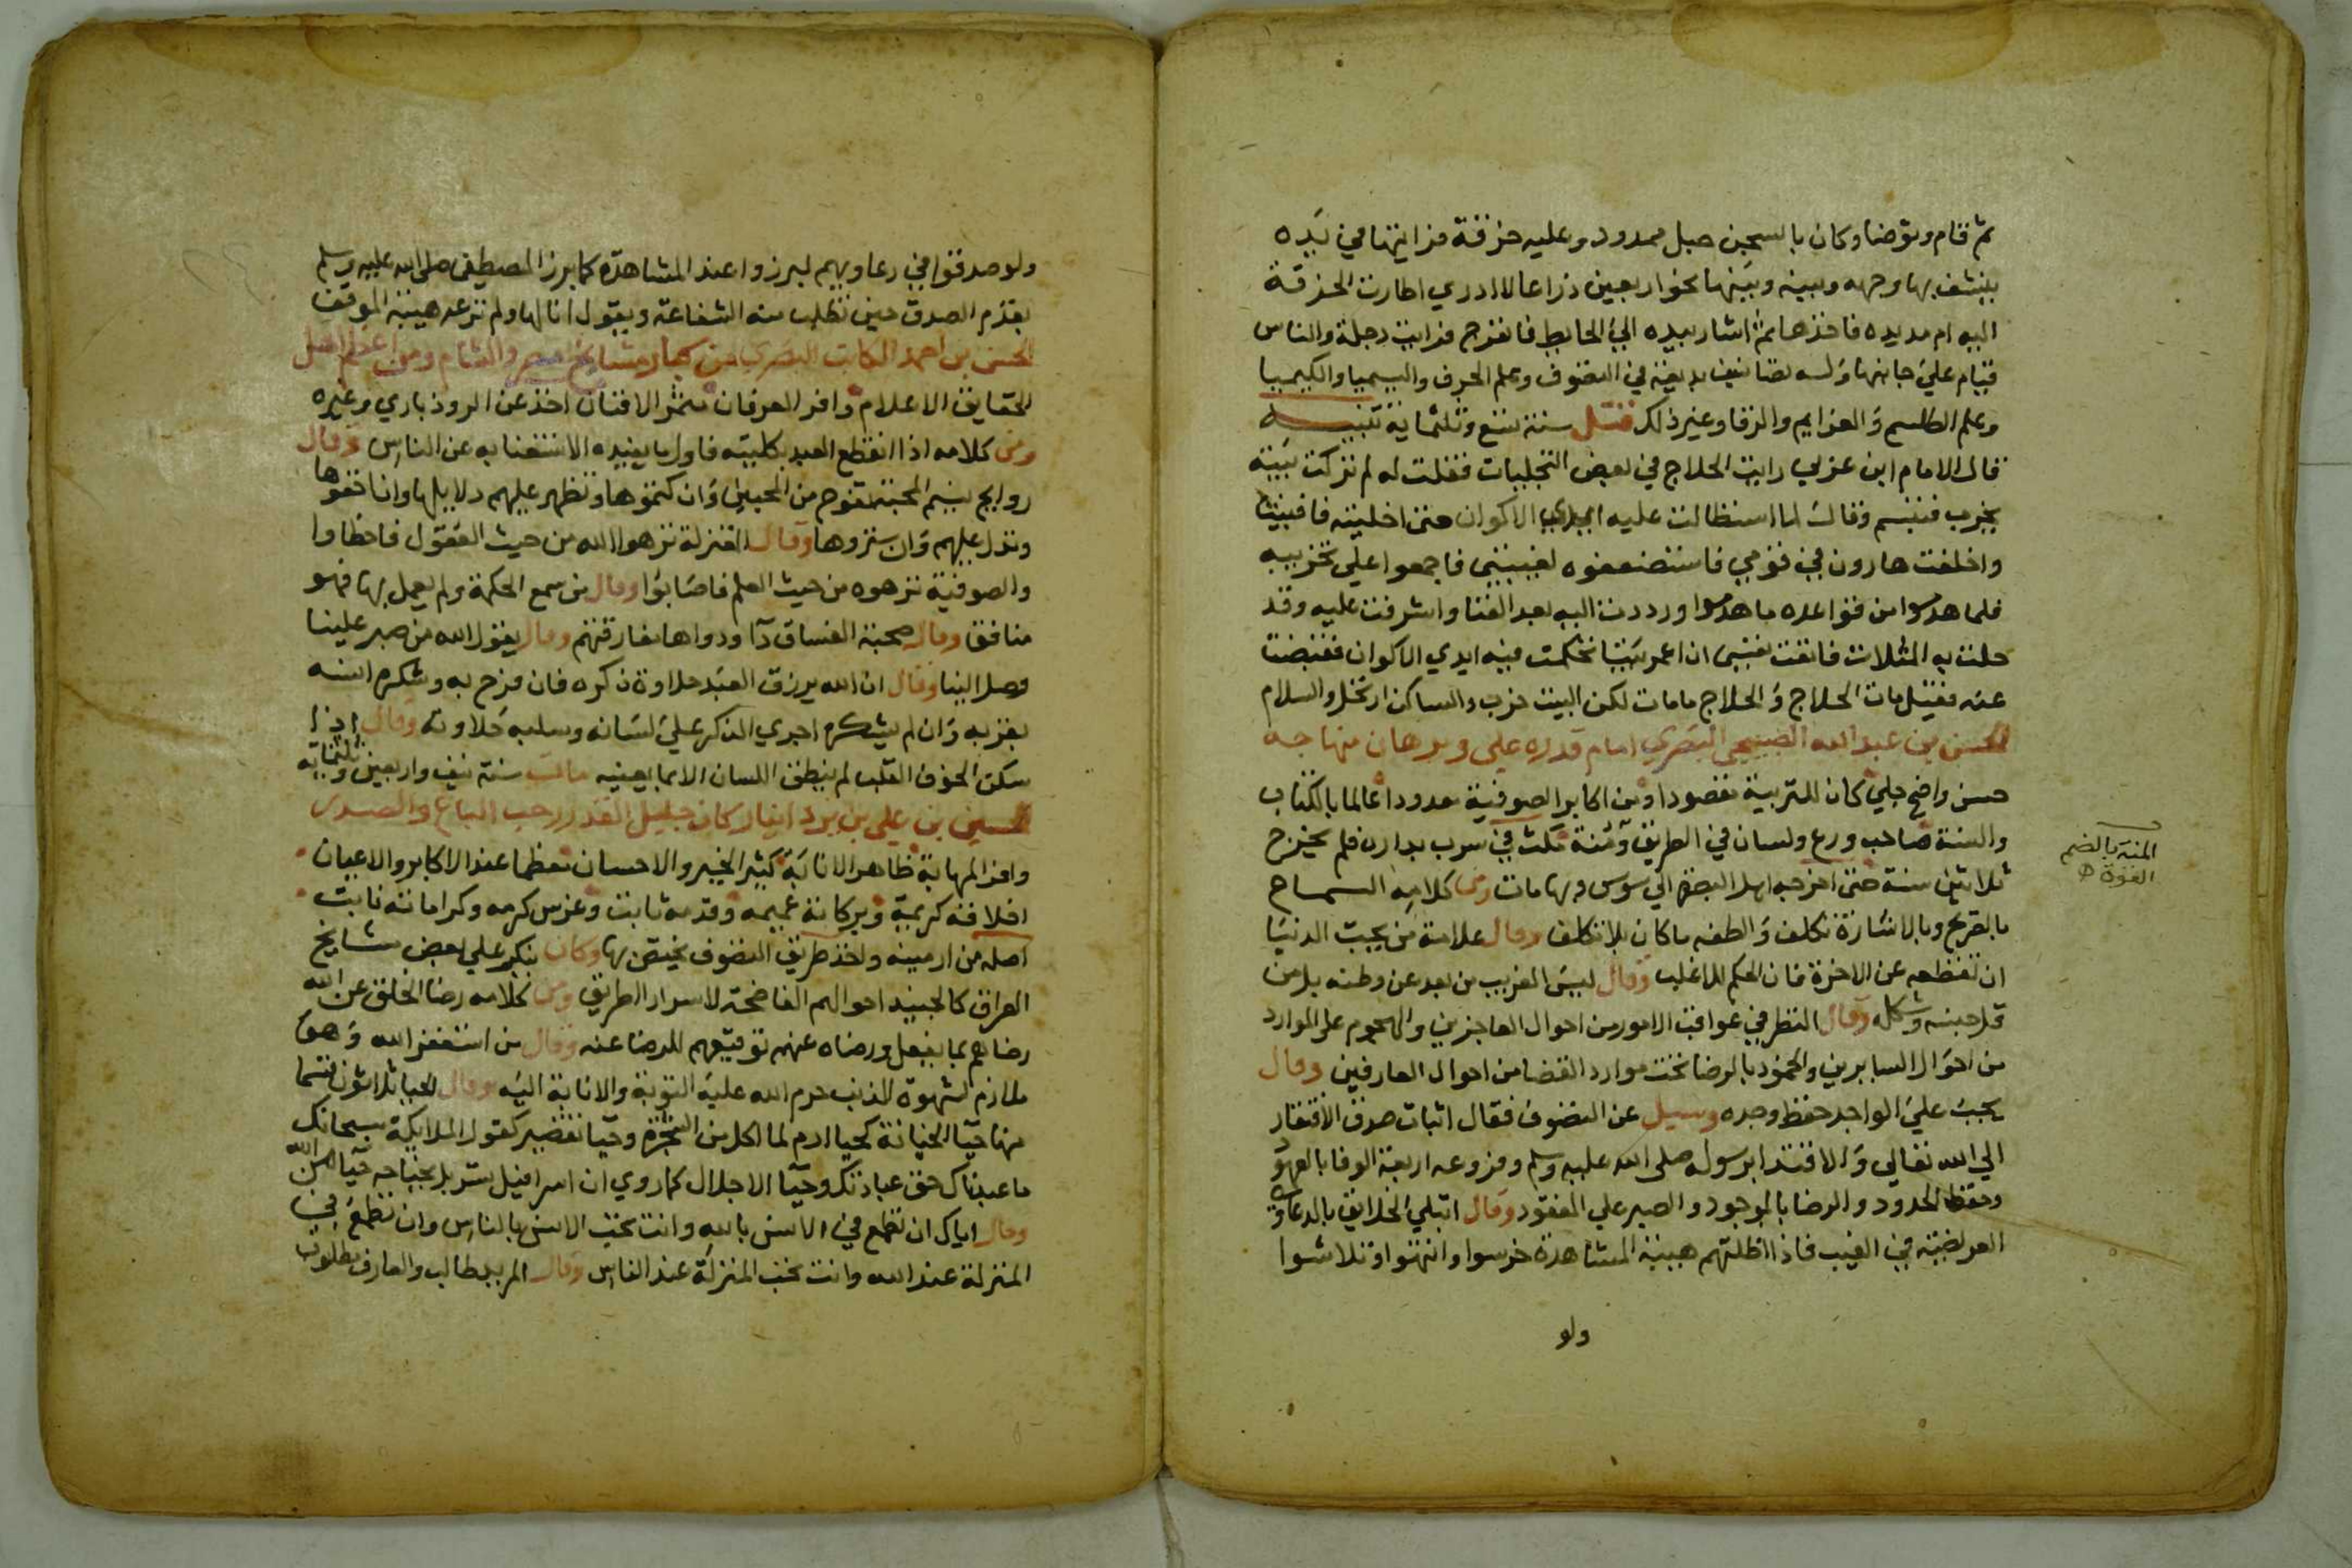 ثم قام وتوضا وكان بالسجن حبل ممدود وعليه خرقة فرايتها في يَده
ينشف بها وجهه وبينه وبَينها نحو اربعين ذراعا لا ادري اطارت الخرقة
اليه ام مد يده فاخذها ثم اشار بيده الي الحايط فانفرج فرايت دجلة والناس
قيام علي جانبها وله تصانيف بديعة في التصوف وعلم الحرف والسيميا والكيميا
وعلم الطلسم والعزايم والرقا وغير ذلك قتل سنة تسع وثلثماية تنبيه
قال الامام ابن عربي رايت الحلاج في بعض التجليات فقلت له لم تركت بيته
يخرب فتبسم وقال لما استطالت عليه ايدي الاكوان حتى اخليته فافنيت
واخلفت هارون في قومي فاستضعفوه لغيبتي فاجمعوا علي تخريبه
فلما هدموا من قواعده ما هدموا ورددت اليه بعد الفنا واشرفت عليه وقد
حلت به المثلات فانفت نفسى ان اعمر بيتا تحكمت فيه ايدي الاكوان فقبضت
عنه فقيل مات الحلاج والحلاج مامات لكن البيت خرب والساكن ارتحل والسلام
الحسن بن عبد الله الصبيحي البصري امام قدره علي وبرهان منهاجه
حسن واضح جلي كان للتربية مقصودا ومن اكابر الصوفية معدودا عالما بالكتاب
والسنة صاحب ورع ولسان في الطريق ومُنة مكث في سرب بداره فلم يخرج
ثلاثين سنة حتى اخرجه اهل البصرة الي سوس وبها مات ومن كلامه السماح
بالتصريح وبالاشارة تكلف والطفه ماكان بلا تكلف وقال علامة من يحب الدنيا
ان تقطعه عن الاخرة فان الحكم للاغلب وقال ليس الغريب من بعد عن وطنه بل من
قل جنسه وشكله وقال النظر في عواقب الامور من احوال العاجزين والهجوم على الموارد
من احوال السايرين والخمود بالرضا تحت موارد القضا من احوال العارفين وقال
يجب علي الواجد حفظ وجده وسيل عن التصوف فقال اثبات صدق الافتقار
الي الله تعالي والاقتدا برسوله صلى الله عليه وسلم وفروعه اربعة الوفا بالعهود
وحفظ الحدود والرضا بالموجود والصبر علي المفقود وقال ابتلي الخلايق بالدعاوي
العريضة في الغيب فاذا اظلتهم هيبة المشاهدة خرسوا وانتهوا وتلاشوا
ولو
المنة بالضم
القوة
ولو صدقوا في دعاويهم لبرزوا عند المشاهدة كما برز المصطفى صلى الله عليه وسلم
بقدم الصدق حين تطلب منه الشفاعة ويقول انا لها ولم ترعه هيبة الموقف
الحسن بن احمد الكاتب المصري من كبار مشايخ مصر والشام ومن اعلم اهل
الحقايق الاعلام وافر العرفان مثمر الافنان اخذ عن الروذباري وغيره
ومن كلامه اذا انقطع العبد بكليته فاول ما يفيده الاستغنا به عن الناس وقال
روايح نسيم المحبة تفوح من المحبين وان كتموها وتظهر عليهم دلايلها وان اخفوها
وتدل عليهم وان ستروها وقال المعتزلة نزهوا الله من حيث العقول فاخطاوا
والصوفية نزهوه من حيث العلم فاصابوا وقال من سمع الحكمة ولم يعمل بها فهو
منافق وقال صحبة الفساق دآ ودواها مفارقتهم وقال يقول الله من صبر علينا
وصل الينا وقال ان الله يرزق العبد حلاوة ذكره فان فرح به وشكره انسه
بقربه وان لم يشكره اجري الذكر علي لسانه وسلبه حلاوته وقال اذا
سكن الخوف القلب لم ينطق اللسان الا بما يعنيه مات سنة نيف واربعين وثلثماية
الحسين بن علي بن يزدانيار كان جليل القدر رحب الباع والصدر
وافر المهابة ظاهر الانابة كثير الخير والاحسان معظما عند الاكابر والاعيان
اخلاقه كريمة وبركاته عميمه وقدمه ثابت وغرس كرمه وكراماته نابت
اصله من ارمينه واخذ طريق التصوف يختص بها وكان ينكر علي بعض مشايخ
العراق كالجنيد احوالهم الفاضحة لاسرار الطريق ومن كلامه رضا الخلق عن الله
رضاهم بما يفعل ورضاه عنهم توفيقهم للرضا عنه وقال من استغفر الله وهو
ملازم لشهوة الذنب حرم الله عليه التوبة والانابة اليه وقال الحيا ثلاثون قسما
منها حيا الخيانة كحيا ادم لما اكل من الشجرة وحيا تقصير كقول الملايكة سبحانك
ما عبدناك حق عبادتك وحيا الاجلال كما روي ان اسرافيل تسربل بجناحه حيا من الله
وقال اياك ان تطمع في الانس بالله وانت تحب الانس بالناس وان تطمع في
المنزلة عند الله وانت تحب المنزلة عند الناس وقال المريد طالب والعارف مطلوب